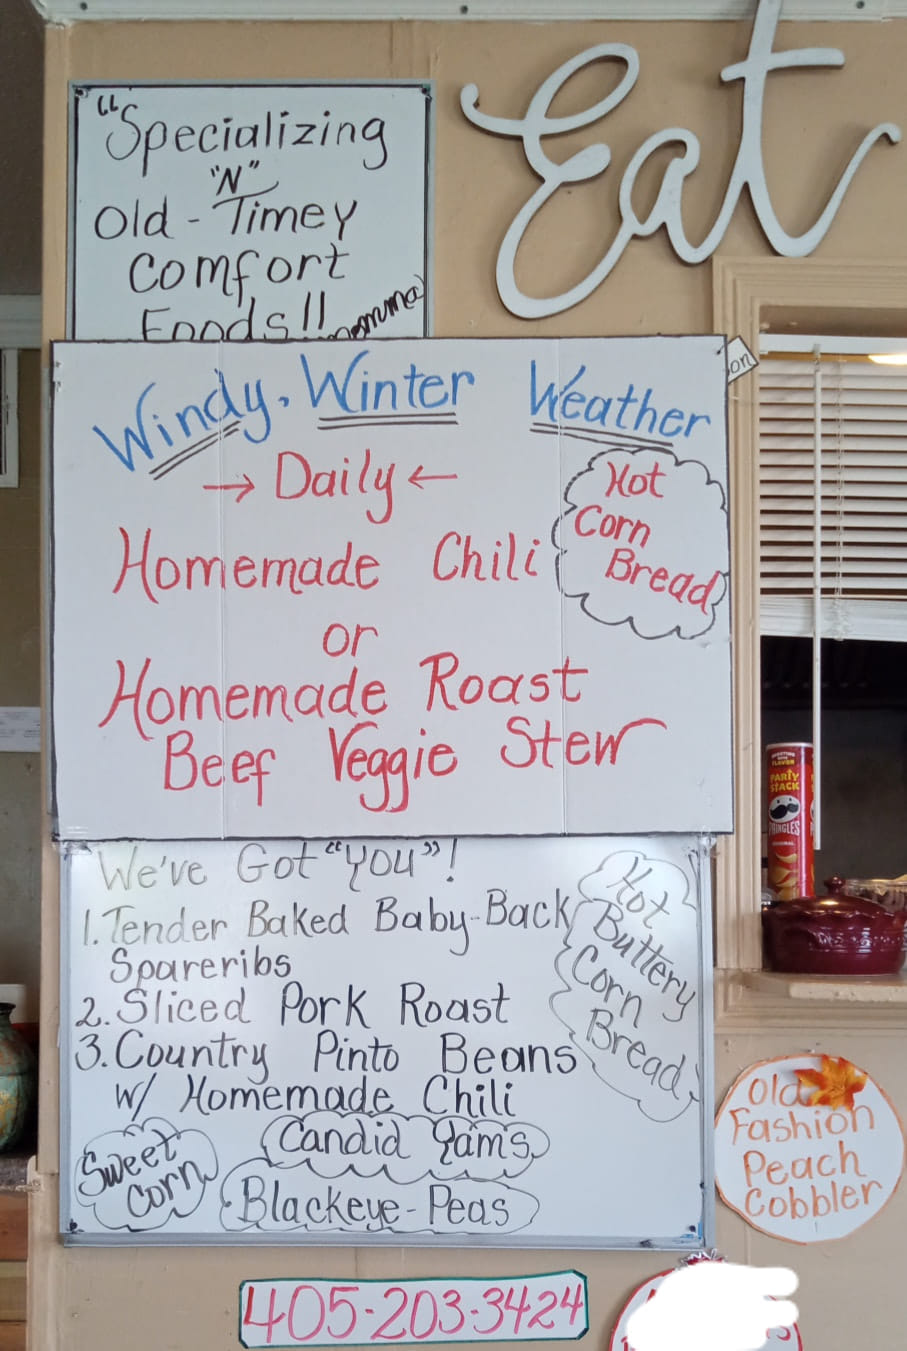 "Specializing
"N"
Old-Timey
Comfort
Foods!!
momma
Eat
on
Windy, Winter Weather
→ Daily ←
Homemade Chili
or
Homemade Roast
Beef Veggie Stew
Hot
Corn
Bread
PARTY
STACK
PRINGLES
ORIGINAL
We've Got "You"!
1. Tender Baked Baby-Back
Spareribs
2. Sliced Pork Roast
3. Country Pinto Beans
w/ Homemade Chili
Hot
Buttery
Corn
Bread
Sweet
Corn
Candid Yams
Blackeye-Peas
Old
Fashion
Peach
Cobbler
405-203-3424